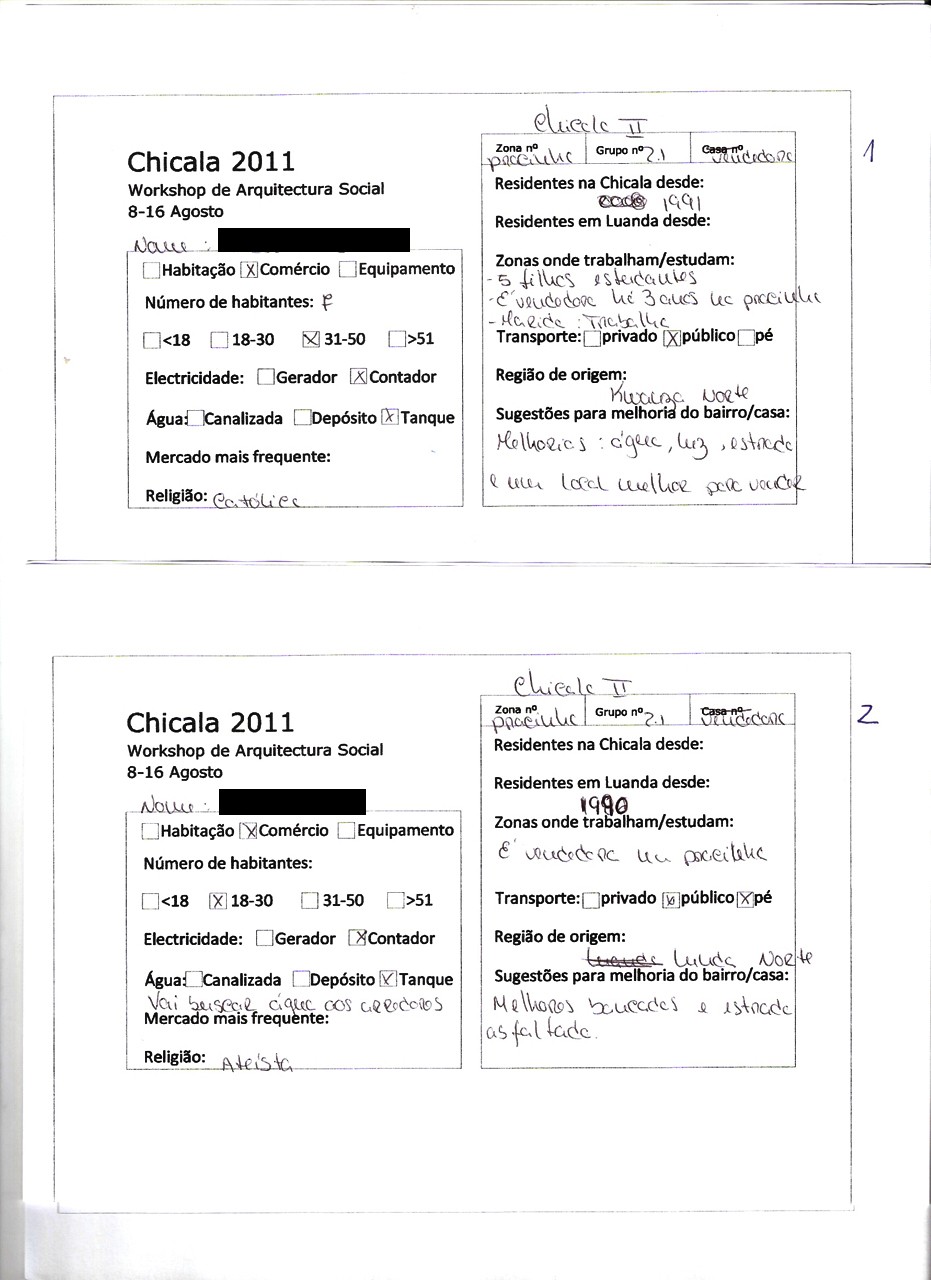 Chicala II
1
Chicala 2011
Workshop de Arquitectura Social
8-16 Agosto
Nome :
Habitação X Comércio Equipamento
Número de habitantes: 7
<18 18-30 X 31-50 >51
Electricidade: Gerador X Contador
Água: Canalizada Depósito X Tanque
Mercado mais frequente:
Religião: Católica
Zona nº pracinha Grupo nº 2.1 Casa nº vendedora
Residentes na Chicala desde:
1991
Residentes em Luanda desde:
Zonas onde trabalham/estudam:
- 5 filhos estudantes
- É vendedora há 3 anos na pracinha
- Marido : Trabalha
Transporte: privado X público pé
Região de origem:
Kwanza Norte
Sugestões para melhoria do bairro/casa:
Melhorias : água, luz, estrada
e um local melhor para vender
Chicala II
2
Chicala 2011
Workshop de Arquitectura Social
8-16 Agosto
Nome :
Habitação X Comércio Equipamento
Número de habitantes:
<18 X 18-30 31-50 >51
Electricidade: Gerador X Contador
Água: Canalizada Depósito X Tanque
Vai buscar água aos arredores
Mercado mais frequente:
Religião: Ateísta
Zona nº pracinha Grupo nº 2.1 Casa nº vendedora
Residentes na Chicala desde:
Residentes em Luanda desde:
1990
Zonas onde trabalham/estudam:
É vendedora na pracinha
Transporte: privado público X pé
Região de origem:
Lunda Norte
Sugestões para melhoria do bairro/casa:
Melhores bancadas e estrada
asfaltada.